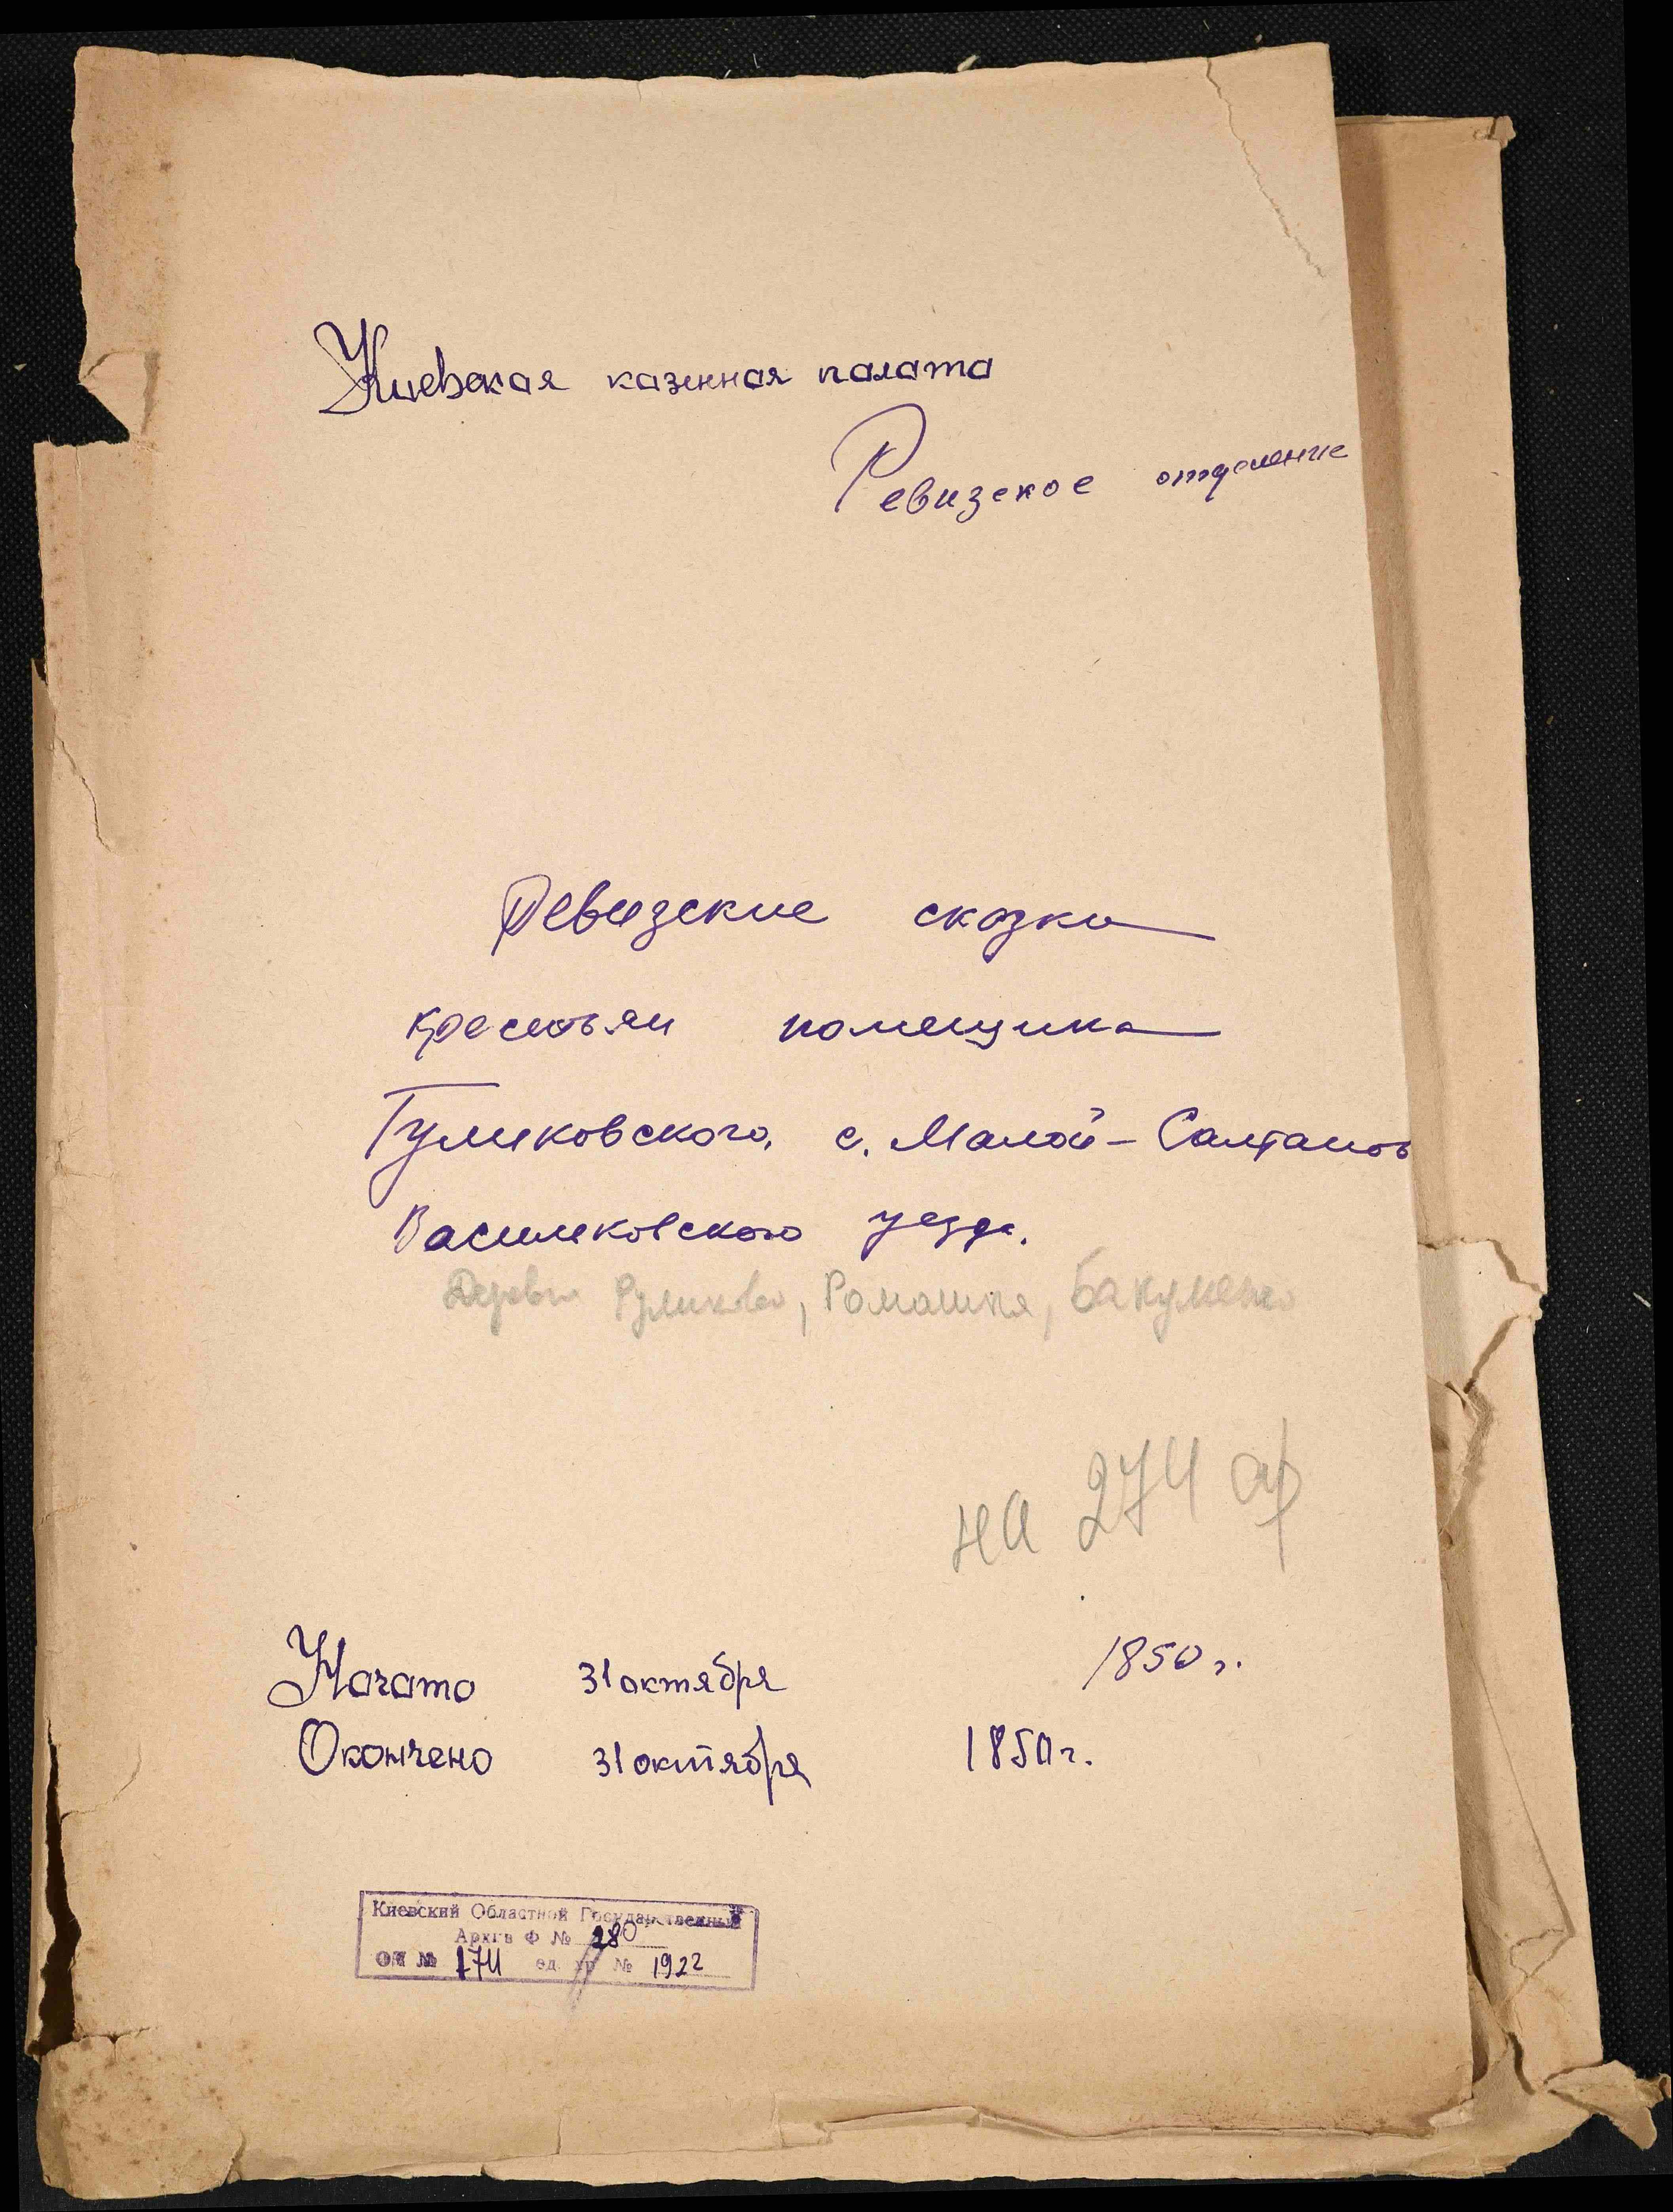 Киевская казенная палата
Ревизское отделение
Ревизские сказки
крестьян помещика
Гулиховского, с. Малой-Салтанов
Васильковского уезда.
Деревни Руликово, Ромашки, Бакумовко
на 274 л
Начато 31 октября 1850 г.
Окончено 31 октября 1850 г.
Киевский Областной Государственный
Архив Ф № 280
ОП № 174 ед. хр № 1922